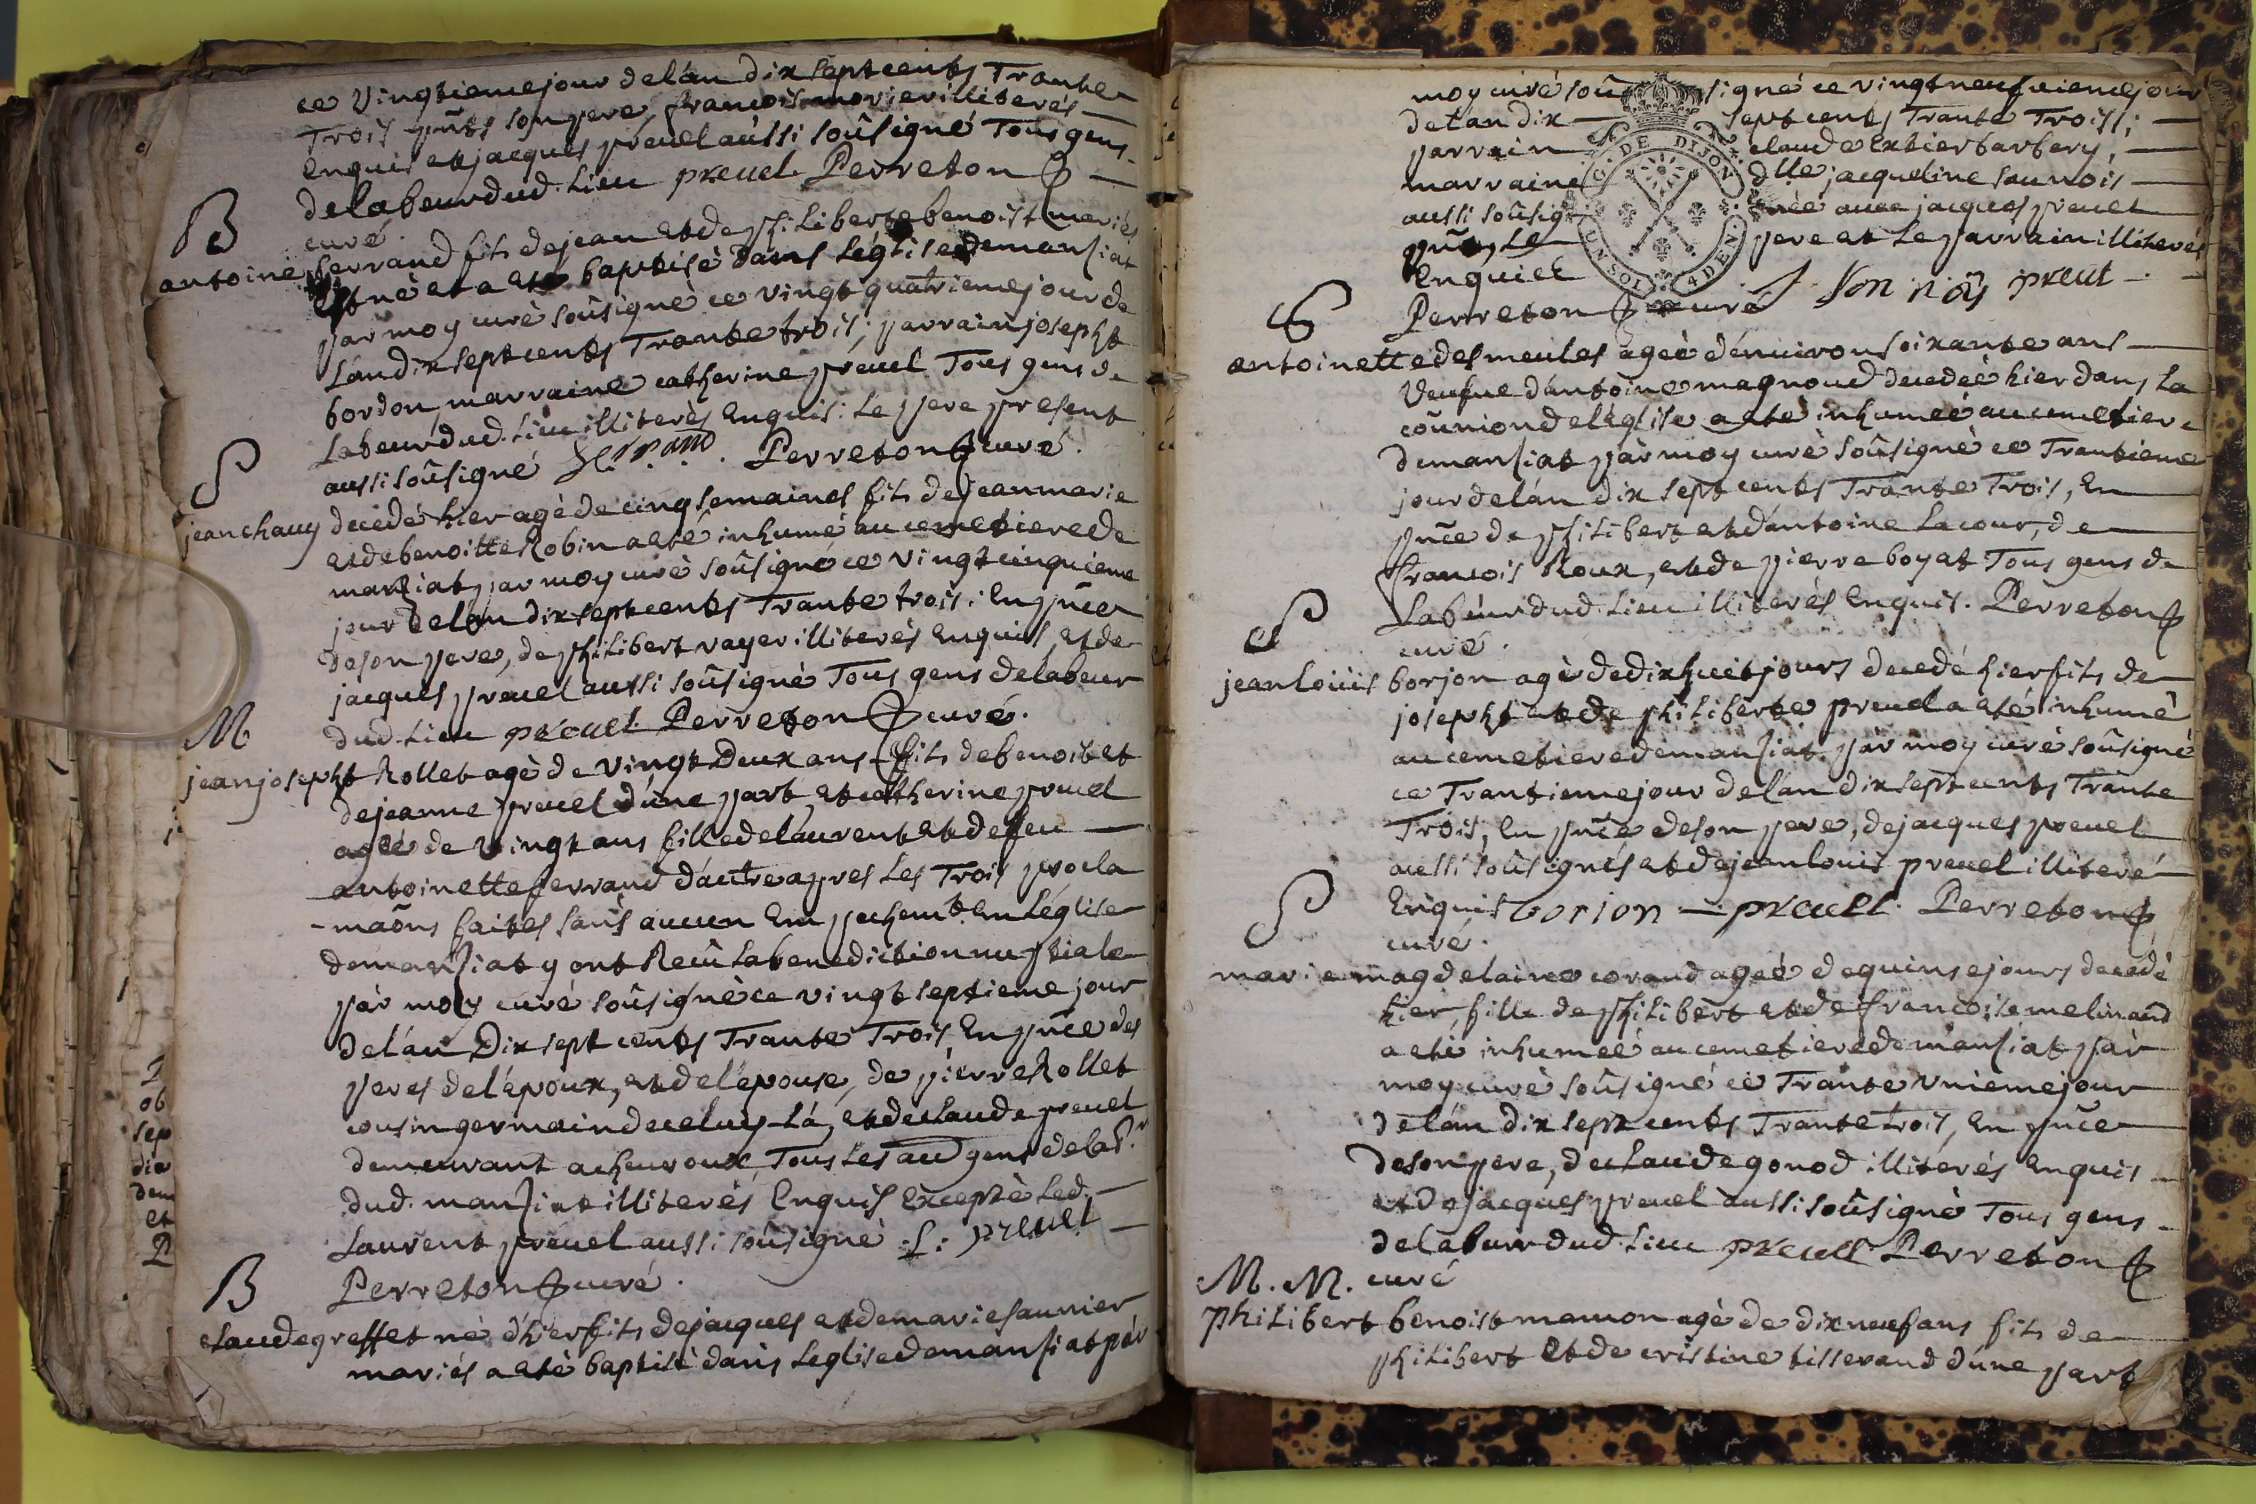 ce vingtiemejour delán dix sept cents Trante
Trois pñts son pere, francois morier illiterés
Enquis et jacques preuel aussi soûsigné Tous gens
delabeur dud. lieu preuel Perreton
curé.
B
antoine ferraud fils dejean et de philiberte benoist mariés
Est né et a eté baptisé dans l'église de mansiat
par moy curé soûsigné ce vingt quatriemejour de
l'an dix sept cents Trante trois; parrain josepht
bordon, marraine catherine preuel Tous gens de
Labeur dud. lieu illiterés Enquis: Le pere present
aussi soûsigné Perreton curé.
S
jean chauy decedé hier agé de cinq semaines fils de jean marie
et de benoitte Robin a eté inhumé au cemetiere de
mansiat par moy curé soûsigné ce vingt cinquieme
jour delán dix sept cents Trante trois: En pñce
de son pere, de philibert rayer illiterés Enquis, et de
jacques preuel aussi soûsigné Tous gens delabeur
dud. lieu preuel Perreton curé.
M
jean josepht Rollet agé de vingt Deux ans fils de benoit et
de jeanne preuel d'une part, et catherine preuel
agée de vingt ans fille de laurent et de feu
antoinette ferraud d'autre apres Les Trois procla
-maõns faites sans aucun Empechemt. En L'église
de mansiat y ont Receu La benediction nuptiale
par moy curé soûsigné ce vingt septieme jour
delán Dix sept cents Trante Trois En pñce des
peres de l'epoux, et de l'epouse, de pierre Rollet
cousin germain de celuy-Lá, et de claude preuel
demeurant a cheuroux Tous Les aud gens de lab.r
dud. mansiat illiterés Enquis Excepté Led.
Laurent preuel aussi soûsigné L: preuel
Perreton curé.
B
claude greffet né d'hier fils de jacques et de marie saunier
mariés a eté baptisé dans l'eglise de mansiat pár
moy curé soûsigné ce vingt neufuiemejour
delan dix sept cents Trante Trois;
parrain claude Extier barbery,
marraine dlle jacqueline saunois
aussi soûsignée auec jacques preuel
pñts, Le pere et Le parrain illiterés
Enquis
G. DE DIJON
UN SOL 4 DEN.
Perreton curé
S
antoinette desmeules agée d'énuiron soixante ans
Veufue d'antoine magnoud decedée hier dans La
coũnion de l'église a eté inhumée au cemetiere
de mansiat pár moy curé soûsigné ce Trantieme
jour delán dix sept cents Trante Trois, En
pñce de philibert et d'antoine Lacour, de
francois Roux, et de pierre boyat Tous gens de
Labeur dud. lieu illiterés Enquis. Perreton
curé.
S
jean loüis borjon agé de dix huit jours decedé hier fils de
josepht et de philiberte preuel a eté inhumé
au cemetiere de mansiat pár moy curé soûsigné
ce Trantiemejour delán dix sept cents Trante
Trois, En pñce de son pere, de jacques preuel
aussi soûsignés et de jean louis preuel illiteré
Enquis borjon preuel. Perreton
curé.
S
marie magdelaine coraud agée de quinse jours decedé
hier, fille de philibert et de francoise melinand
a eté inhumée au cemetiere de mansiat pár
moy curé soûsigné ce Trante vniemejour
delán dix sept cents Trante trois, En pñce
de son pere, de claude gonod illiterés Enquis
et de jacques preuel aussi soûsigné Tous gens
de labeur dud. lieu preuel Perreton
curé
M. M.
philibert benoist mamon agé de dix neuf ans fils de
philibert Et de cristine tisserand d'une part